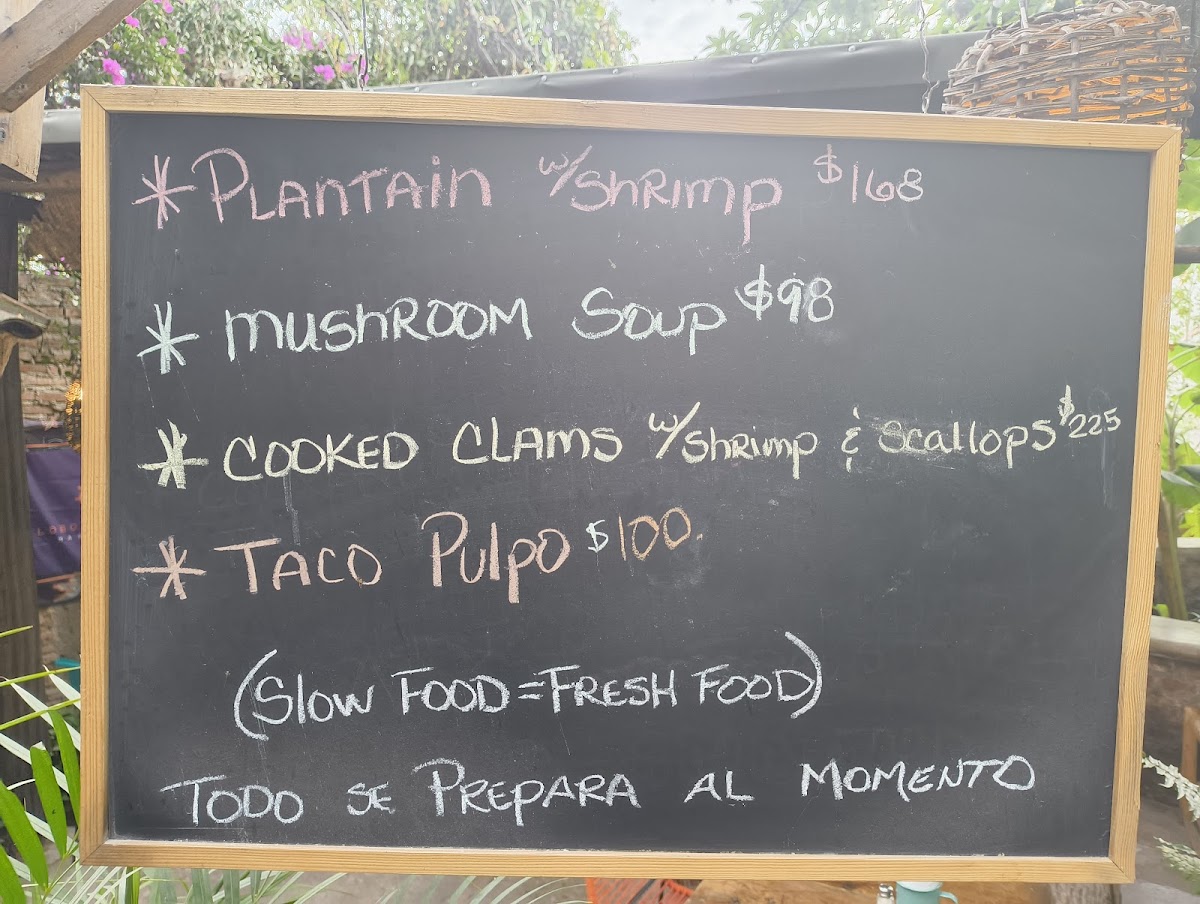 * PLANTAIN w/SHRIMP $168
* MUSHROOM SOUP $98
* COOKED CLAMS w/Shrimp & Scallops $225
* TACO PULPO $100.
(SLOW FOOD = FRESH FOOD)
TODO SE PREPARA AL MOMENTO